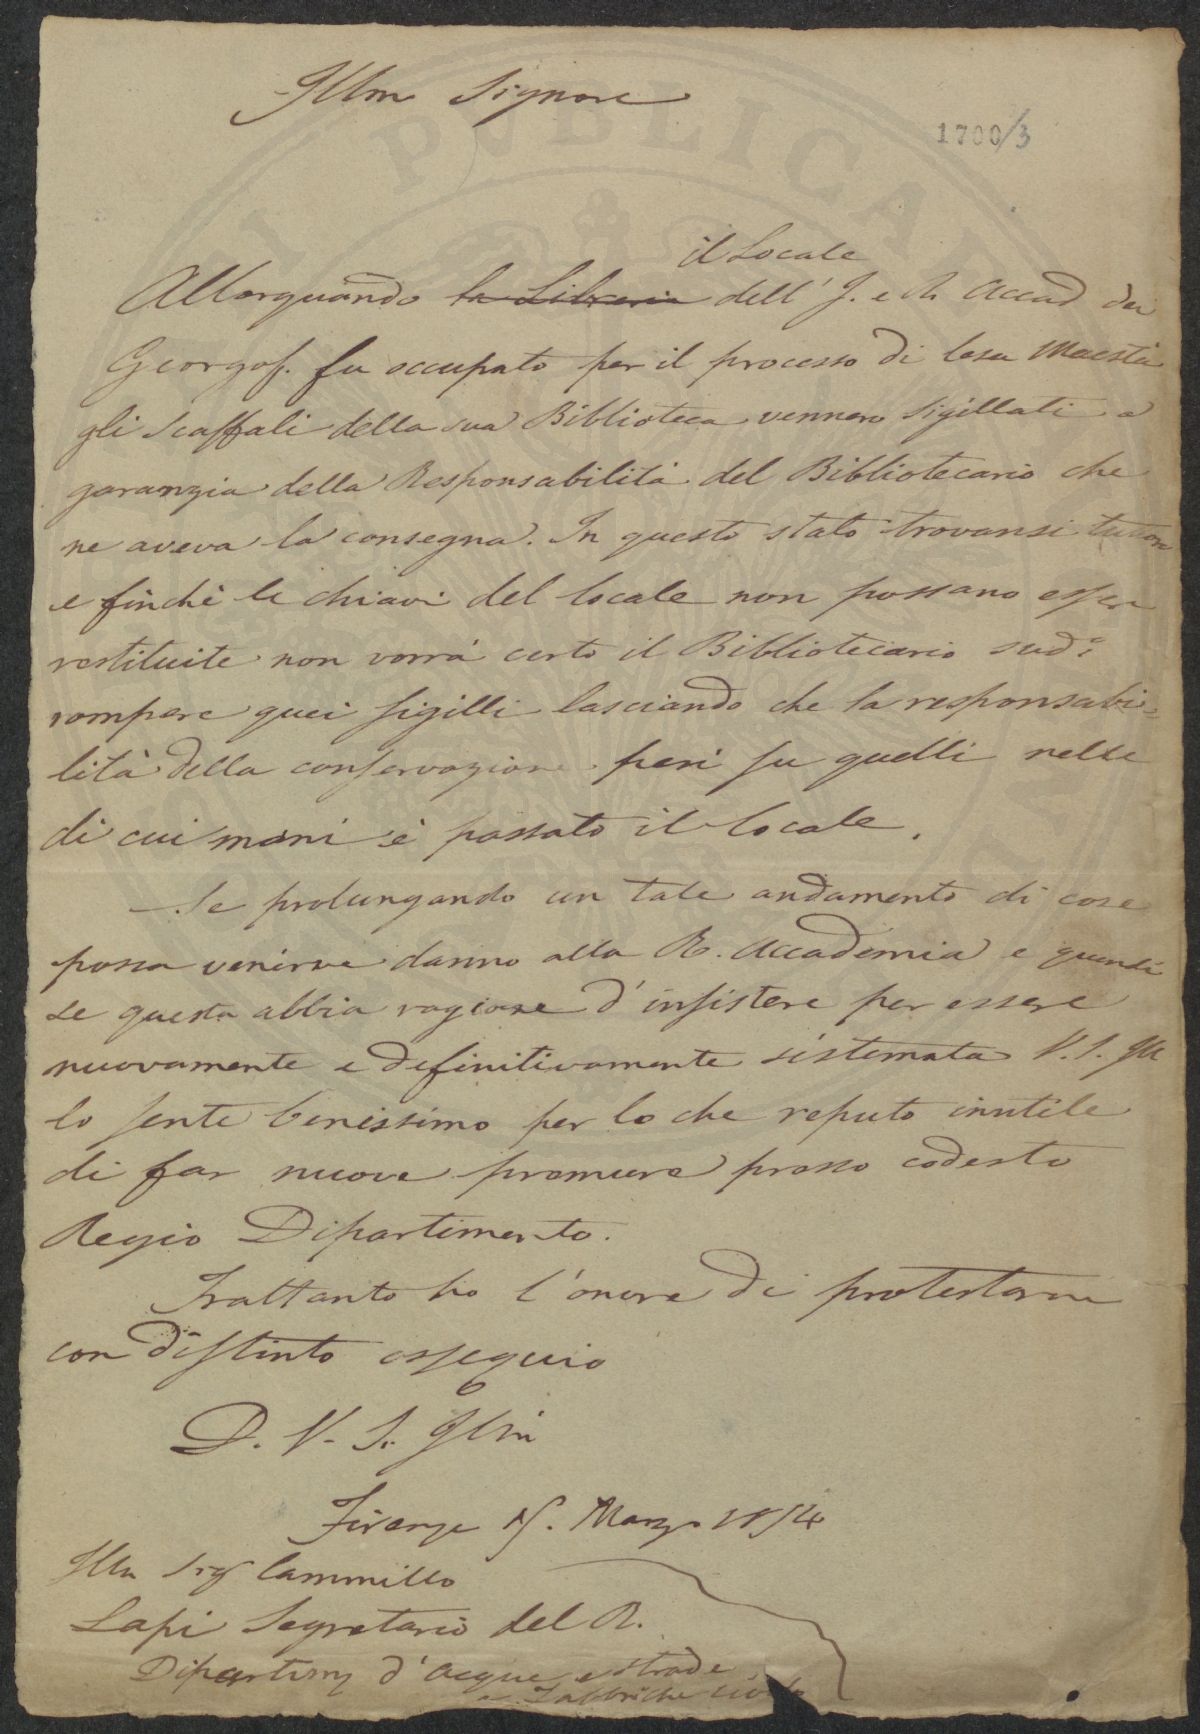 Illmo Signore
1700/3
il Locale
Allorquando la Libreria dell' I. e R. Accad dei
Georgof. fu occupato per il processo di lesa Maestà
gli Scaffali della sua Biblioteca vennero Sigillati a
garanzia della Responsabilità del Bibliotecario che
ne aveva la consegna. In questo stato trovansi tuttora
e finchè le chiavi del locale non possano esser
restituite non vorrà certo il Bibliotecario sudº
rompere quei sigilli lasciando che la responsabi=
lità della conservazione pesi su quelli nelle
di cui mani è passato il locale.
Se prolungando un tale andamento di cose
possa venirne danno alla R. Accademia e quindi
se questa abbia ragione d'insistere per essere
nuovamente e definitivamente sistemata V. S. Ill
lo sente benissimo per lo che reputo inutile
di far nuove premure presso codesto
Regio Dipartimento.
Frattanto ho l'onore di protestarmi
con distinto ossequio
D. V. S. Illma
Firenze 15. Marzo 1854
Illmo Sigr Cammillo
Lapi Segretario del R.
Dipartim d'acque e strade
e Fabbriche civili